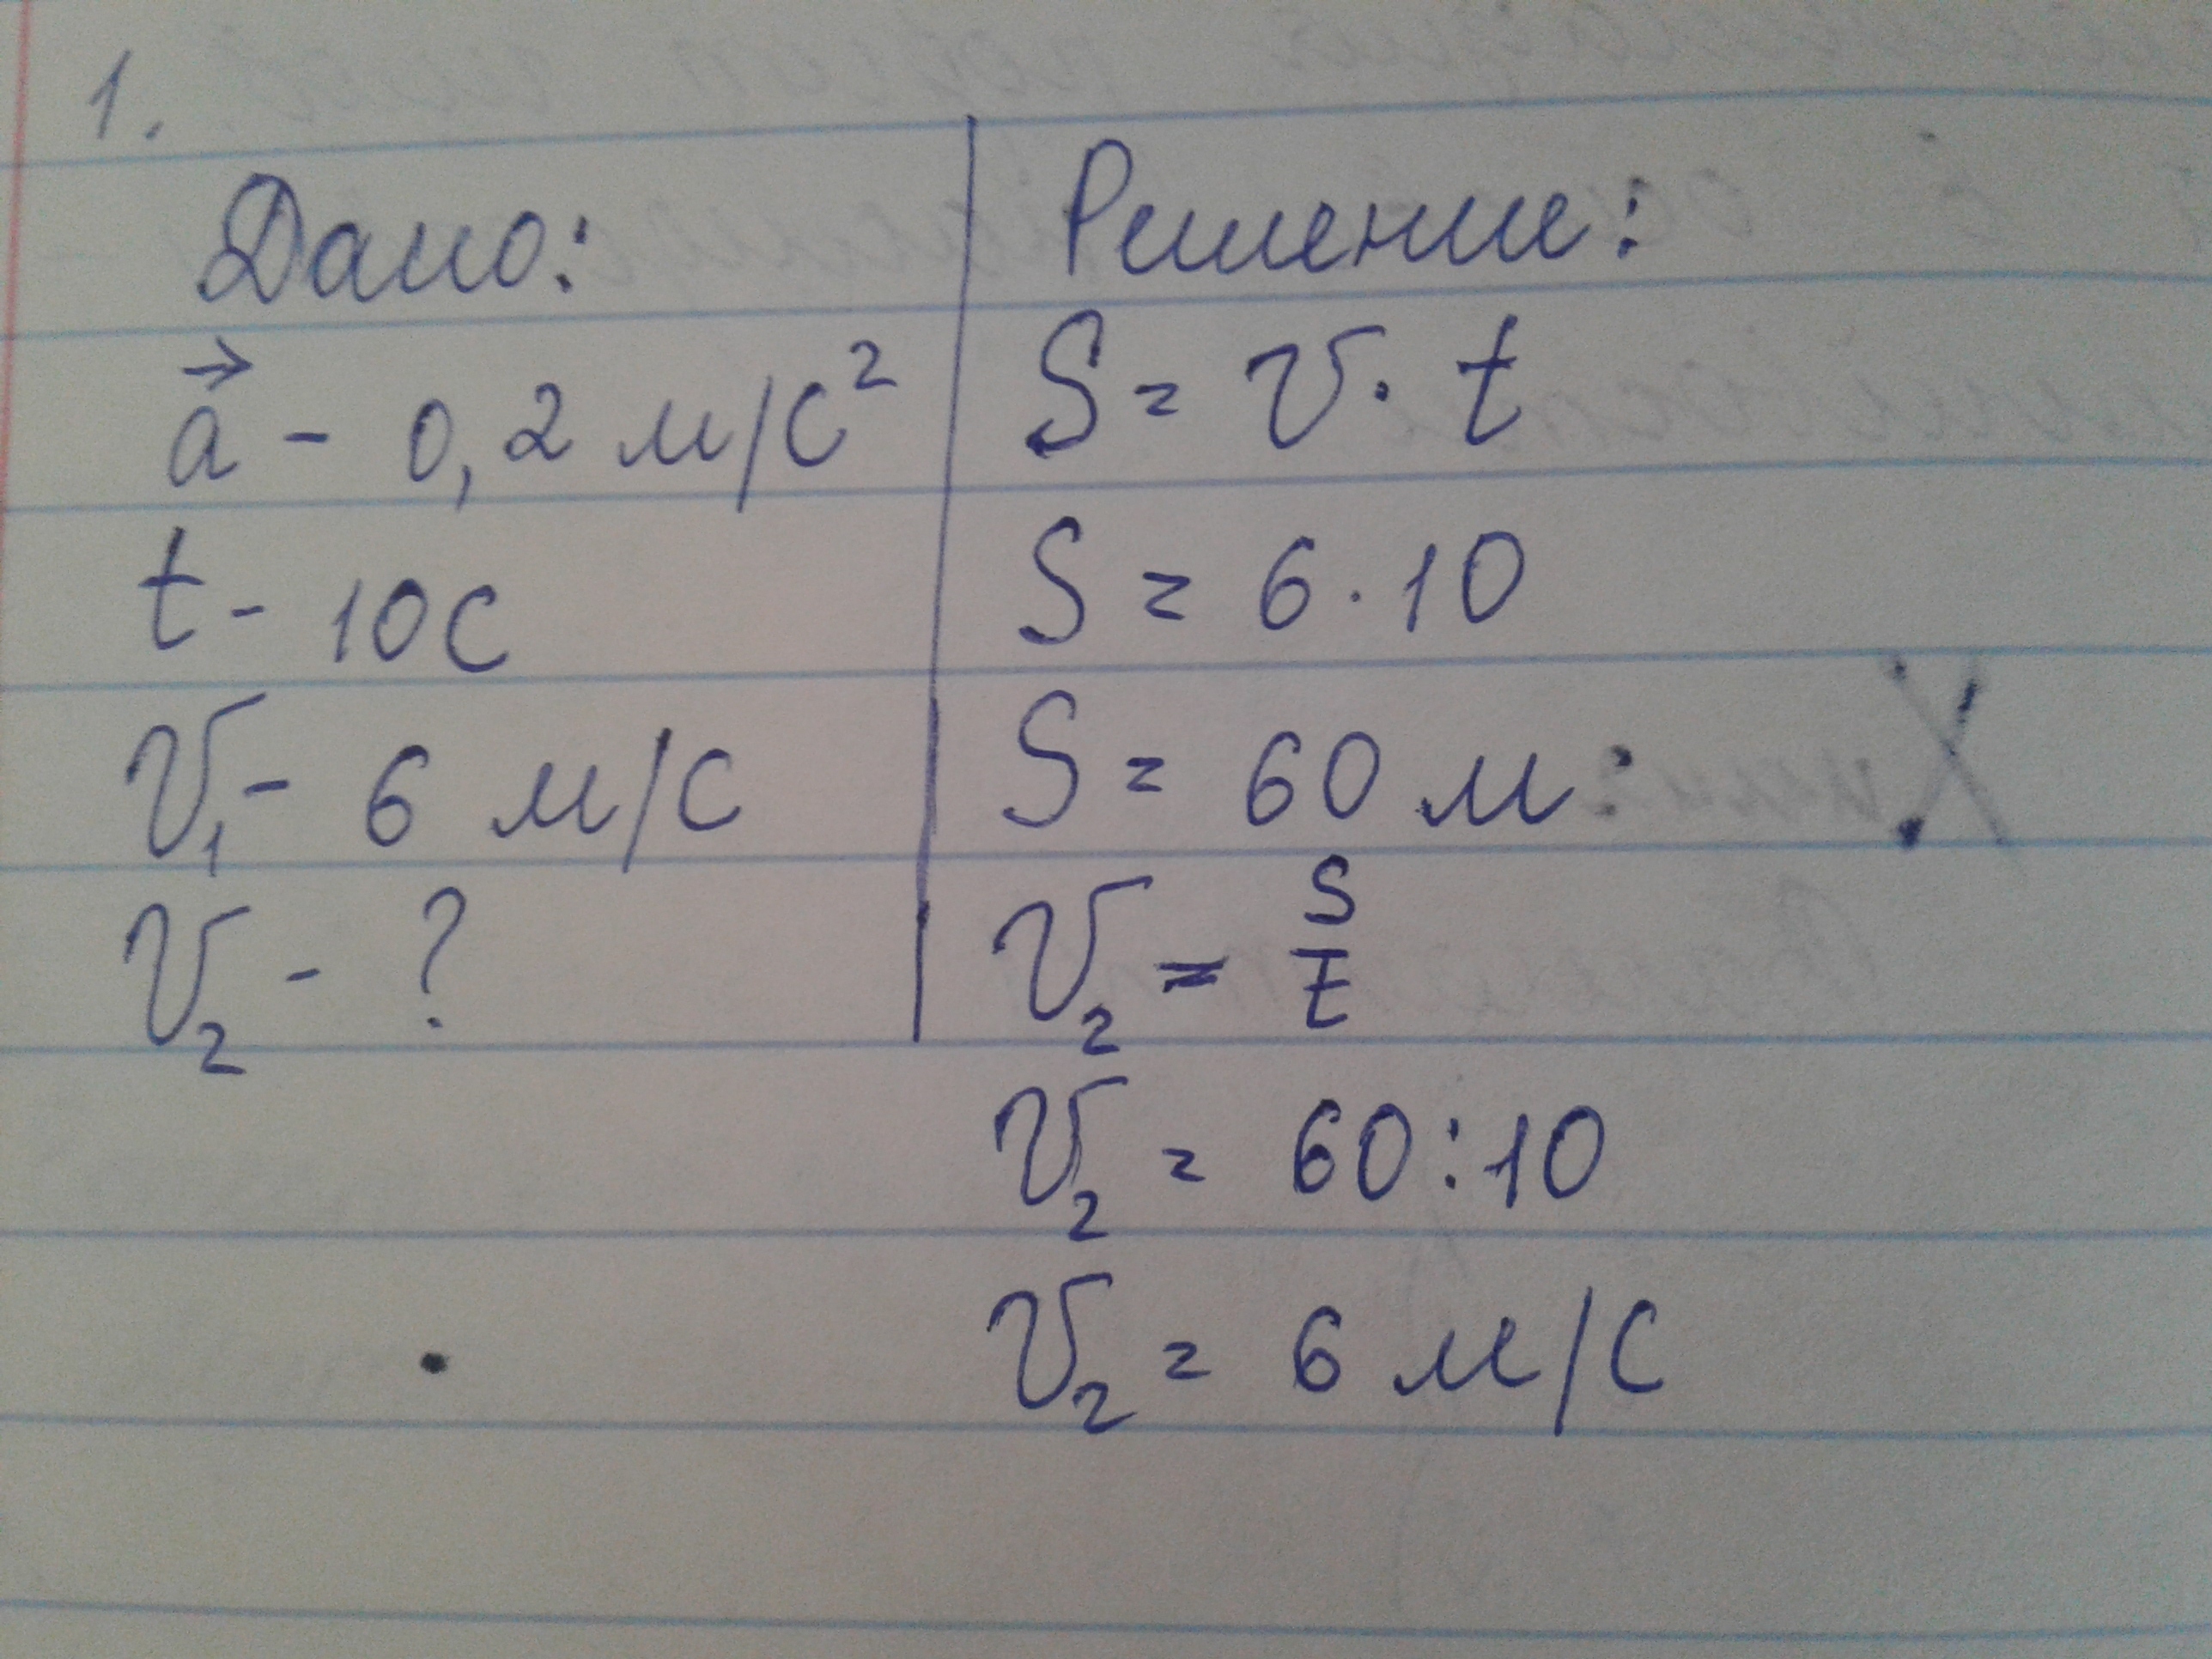 1.
Дано:
a⃗ - 0,2 м/с²
t - 10 с
V₁ - 6 м/с
V₂ - ?
Решение:
S = V · t
S = 6 · 10
S = 60 м
V₂ = S/t
V₂ = 60 : 10
V₂ = 6 м/с